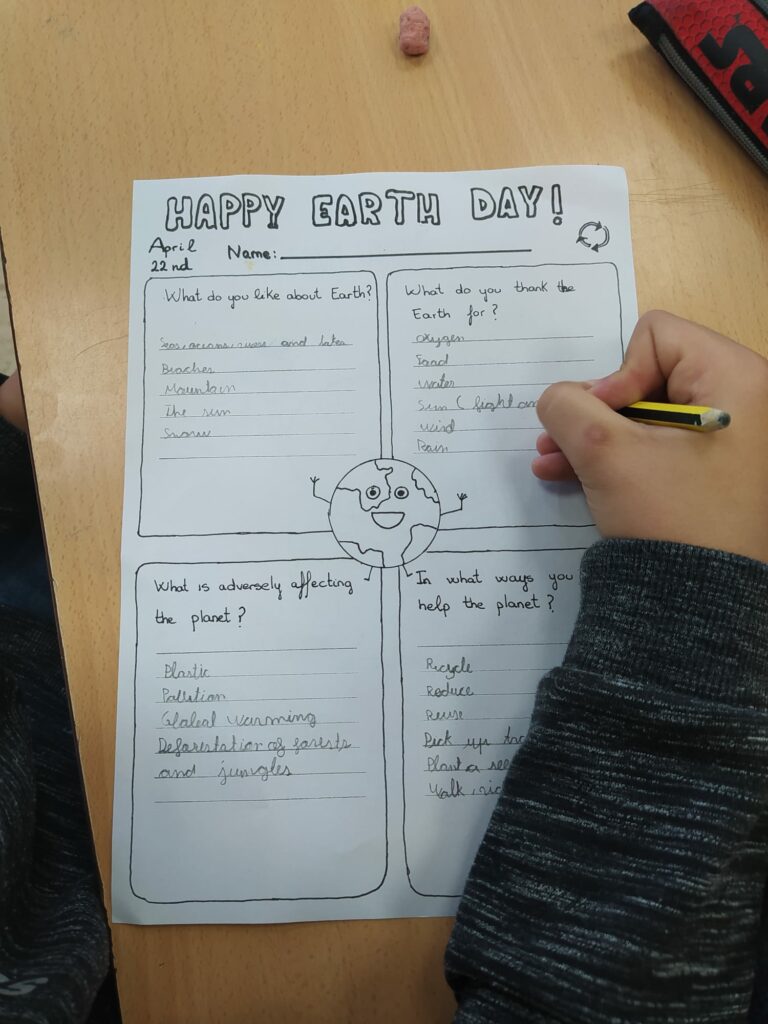 HAPPY EARTH DAY!
April
22nd
Name:
What do you like about Earth?
Seas, oceans, rivers and lakes
Beaches
Mountain
The sun
Snow
What do you thank the
Earth for?
Oxygen
Food
Water
Sun (light an
Wind
Rain
What is adversely affecting
the planet?
Plastic
Pollution
Global warming
Deforestation of forests
and jungles
In what ways you
help the planet?
Recycle
Reduce
Reuse
Pick up
Plant a
Walk,